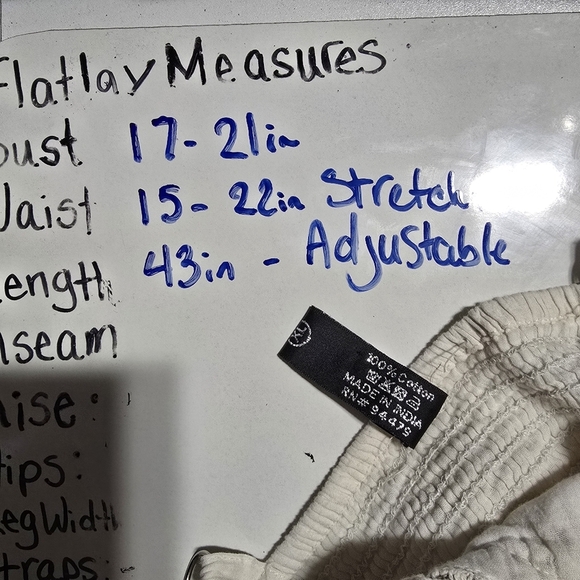 Flatlay Measures
Bust 17- 21in
Waist 15- 22in Stretch
Length 43in - Adjustable
Inseam
Rise:
Hips:
Leg Width
Straps:
XL
100% Cotton
MADE IN INDIA
RN# 94479